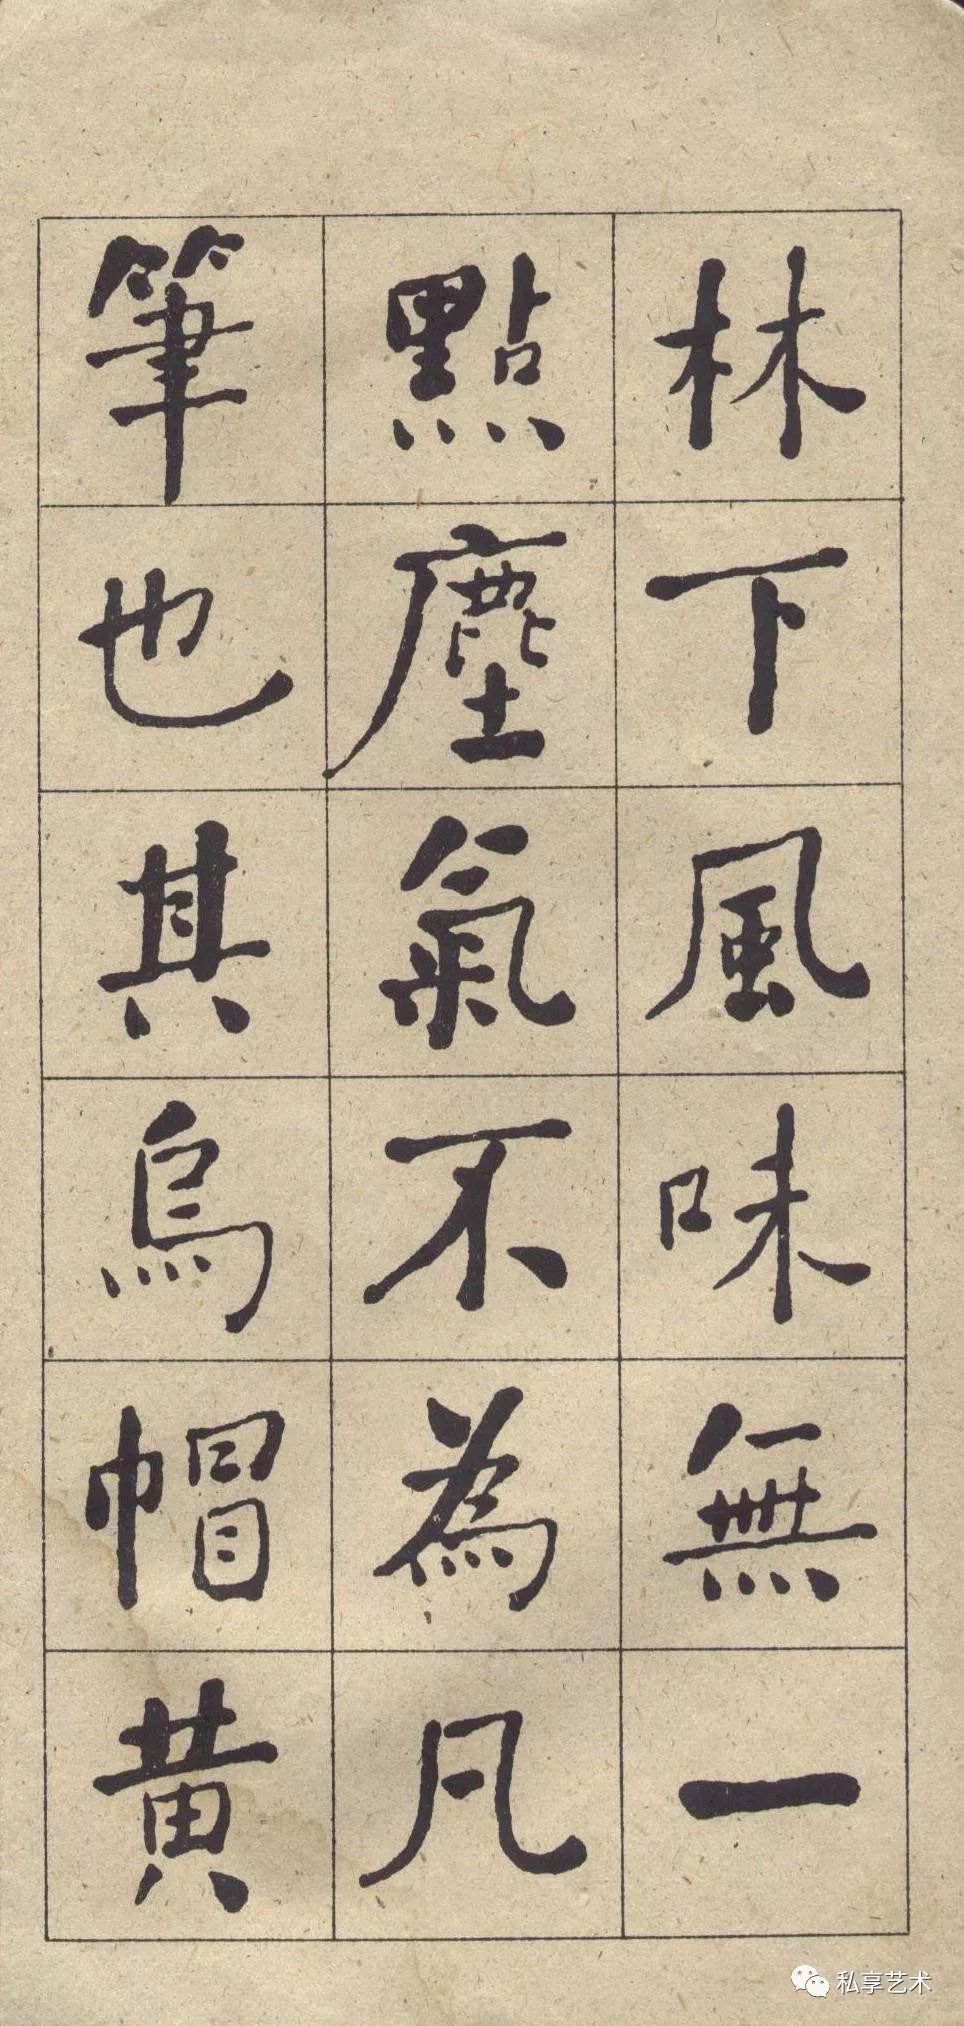 林下風味無一
點塵氣不為凡
筆也其烏帽黄
私享艺术